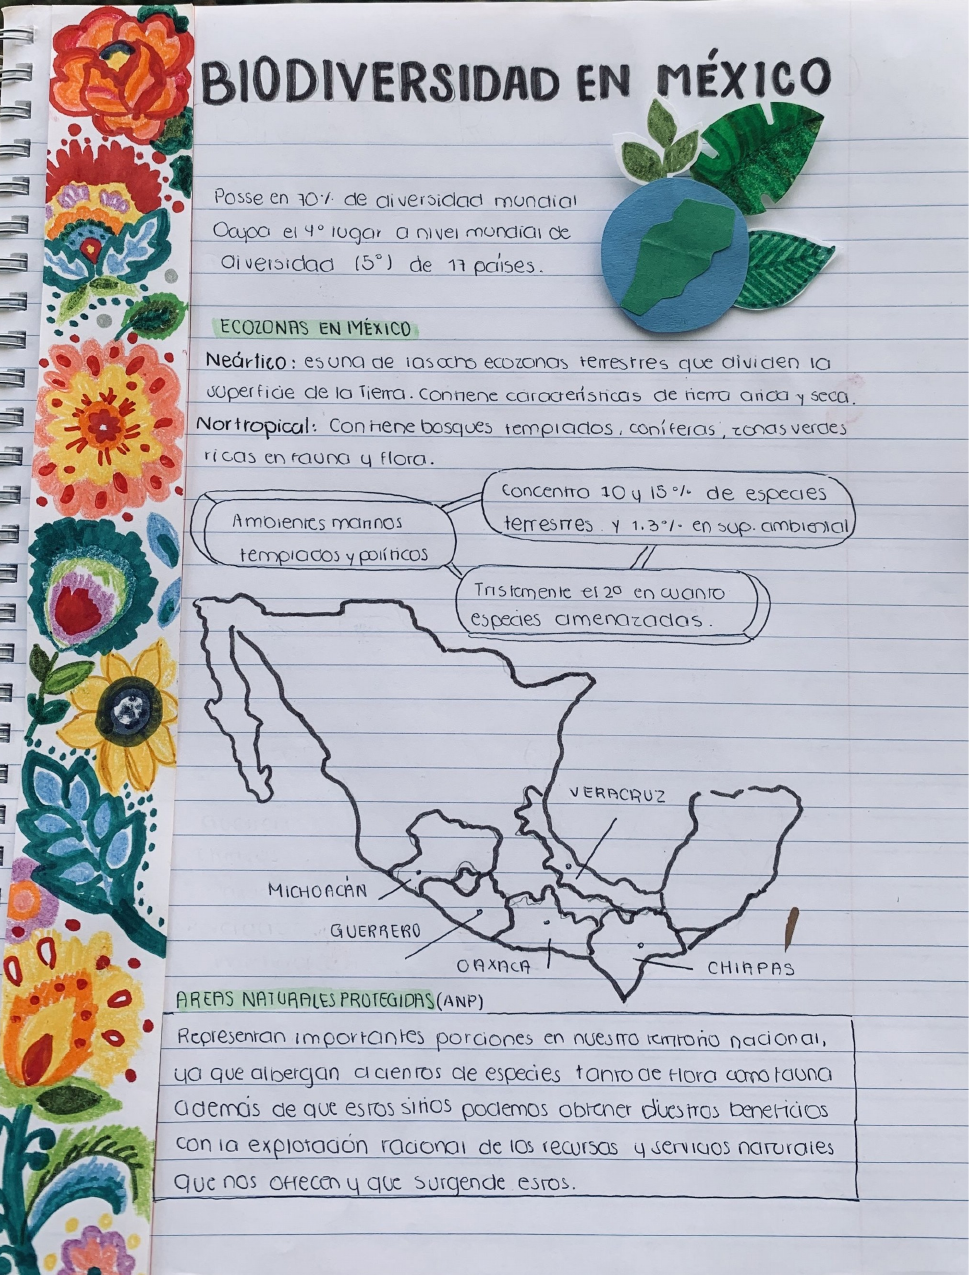 BIODIVERSIDAD EN MÉXICO
Posse en 70% de diversidad mundial
Ocupa el 4° lugar a nivel mundial de
diversidad (5°) de 17 países.
ECOZONAS EN MÉXICO
Neártico: es una de las ocho ecozonas terrestres que dividen la
superficie de la Tierra. Contiene características de tierra arida y seca.
Nortropical: Contiene bosques templados, coníferas, zonas verdes
ricas en fauna y flora.
Concentra 10 y 15% de especies
terrestres y 1.3% en sup. ambiental
Ambientes marinos
templados y políticos
Tristemente el 20 en cuanto
especies amenazadas.
VERACRUZ
MICHOACÁN
GUERRERO
OAXACA
CHIAPAS
AREAS NATURALES PROTEGIDAS (ANP)
Representan importantes porciones en nuestro territorio nacional,
ya que albergan a cientos de especies tanto de flora como fauna
además de que estos sitios podemos obtener diestros beneficios
con la explotación racional de los recursos y servicios naturales
que nos ofrecen y que surgende estos.